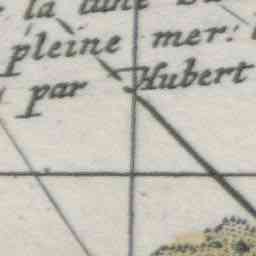 la lune
pleine mer:
par Hubert